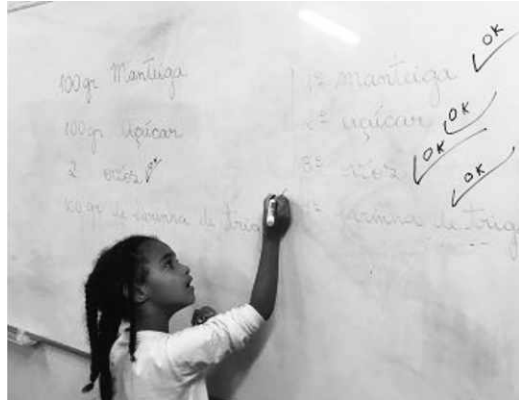 100gr Manteiga
100gr açúcar
2 ovos
100gr de farinha de trig
1º manteiga OK
2º açúcar OK
3º ovos OK
farinha de trig OK